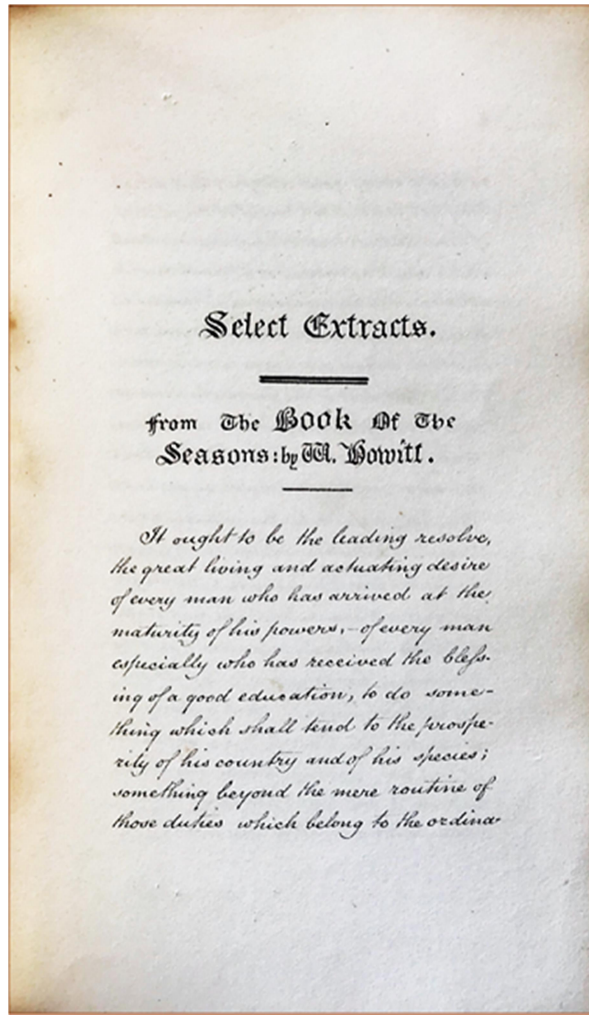 Select Extracts.
From The Book Of The
Seasons: by W. Howitt.
It ought to be the leading resolve,
the great living and actuating desire
of every man who has arrived at the
maturity of his powers, - of every man
especially who has received the bless-
ing of a good education, to do some-
thing which shall tend to the prospe-
rity of his country and of his species;
something beyond the mere routine of
those duties which belong to the ordina-